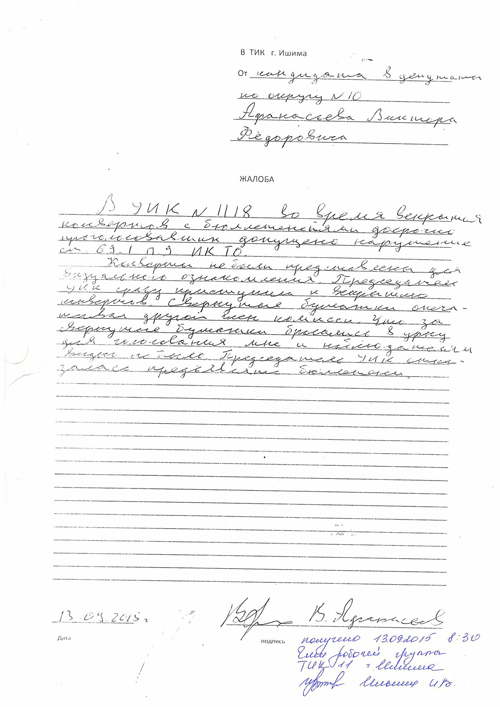 В ТИК г. Ишима
От кандидата в депутаты
по округу N 10
Афанасьева Виктора
Фёдоровича
ЖАЛОБА
В УИК N 1118 во время вскрытия
конвертов с бюллетенями досрочно
проголосовавших допущено нарушение
ст 69.1 п 9 ИК ТО.
Конверты не были представлены для
визуального ознакомления. Председатель
УИК сразу приступил к вскрытию
конвертов. Свернутые бумажки
другой член комиссии. Что за
свернутые бумажки бросались в урну
для голосования мне и наблюдателям
видно не было. Председатель УИК отка-
залась предъявить бюллетени.
13.09.2015г
В. Афанасьев
Дата
подпись
получено 13.092015 8:30
Член рабочей группы
ТИК 11 г. Ишима